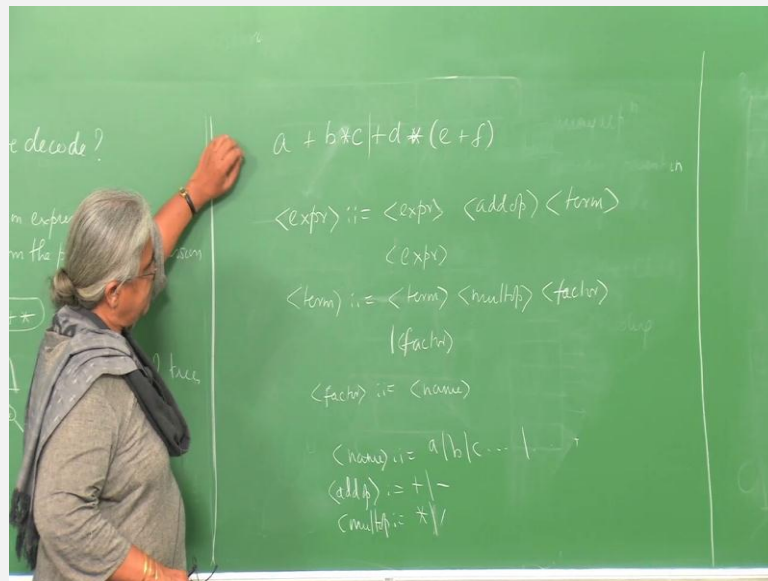 decode?
expre
the
a + b*c|+d*(e+f)
<expr> ::= <expr> <addop> <term>
<expr>
<term> ::= <term> <multop> <factor>
|<factor>
<factor> ::= <name>
<name> ::= a|b|c...|...
<addop> ::= +|-
<multop ::= *|/
tree